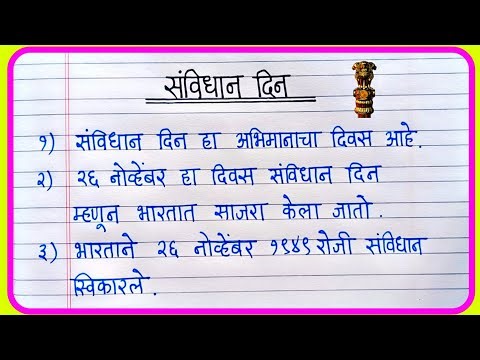 संविधान दिन
१) संविधान दिन हा अभिमानाचा दिवस आहे.
२) २६ नोव्हेंबर हा दिवस संविधान दिन
म्हणून भारतात साजरा केला जातो.
३) भारताने २६ नोव्हेंबर १९४९ रोजी संविधान
स्विकारले.